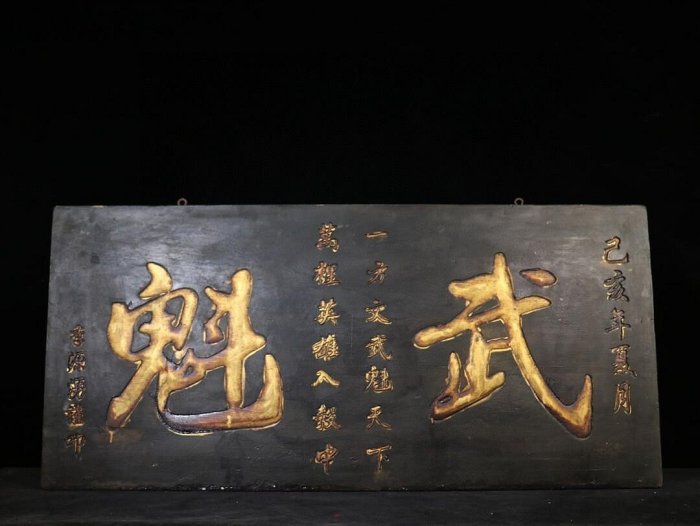 己亥年夏月
武
一方文武魁天下
萬裡英雄入彀中
魁